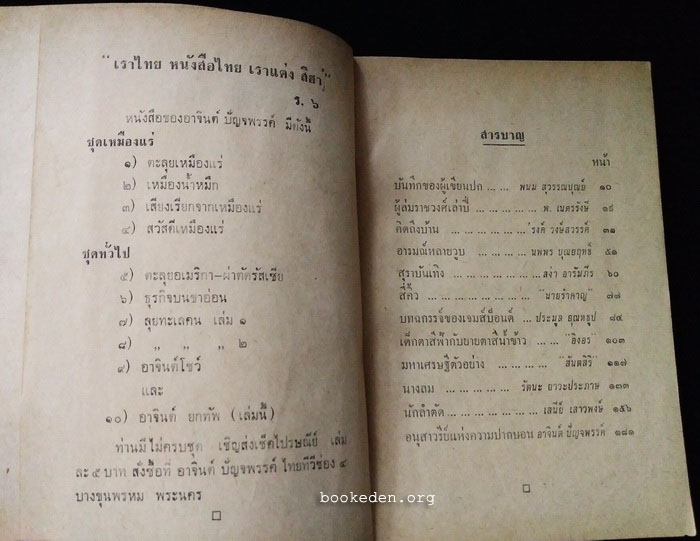 "เราไทย หนังสือไทย เราแต่ง สิฮา"
ร. ๖
หนังสือของอาจินต์ ปัญจพรรค์ มีดังนี้
ชุดเหมืองแร่
๑) ตะลุยเหมืองแร่
๒) เหมืองน้ำหมึก
๓) เสียงเรียกจากเหมืองแร่
๔) สวัสดีเหมืองแร่
ชุดทั่วไป
๕) ตะลุยอเมริกา-ผ่าทัดรัสเซีย
๖) ธุรกิจบนขาอ่อน
๗) ลุยทะเลคน เล่ม ๑
๘) " " " ๒
๙) อาจินต์โชว์
และ
๑๐) อาจินต์ ยกทัพ (เล่มนี้)
ท่านมีไม่ครบชุด เชิญส่งเช็คไปรษณีย์ เล่ม
ละ ๕ บาท สั่งซื้อที่ อาจินต์ ปัญจพรรค์ ไทยทีวีช่อง ๔
บางขุนพรหม พระนคร
สารบาญ
หน้า
บันทึกของผู้เขียนปก ... ... พนม สุวรรณบุณย์ ๑๐
ผู้ล่มราชวงศ์เล่าปี่ ... ... ... ... พ. เนตรรังษี ๑๙
คิดถึงบ้าน ... ... ... ... 'รงค์ วงษ์สวรรค์ ๓๑
อารมณ์หลายวูบ ... ... ... นพพร บุณยฤทธิ์ ๕๑
สุราบันเทิง ... ... ... ... สง่า อารัมภีร ๖๐
สีคิ้ว ... ... ... ... ... "นายรำคาญ" ๗๗
บทฉกรรจ์ของเจมส์บ๊อนด์ ... ประมูล อุณหธูป ๘๔
เด็กตาสีฟ้ากับยายตาสีน้ำข้าว ... ... "อิงอร" ๑๐๓
มหาเศรษฐีตัวอย่าง ... ... ... "สันตสิริ" ๑๑๗
นางลม ... ... ... ... รัตนะ ยาวะประภาษ ๑๓๓
นักลำตัด ... ... ... ... ... เสนีย์ เสาวพงษ์ ๑๕๖
อนุสาวรีย์แห่งความปากบอน อาจินต์ ปัญจพรรค์ ๑๘๑
bookeden.org